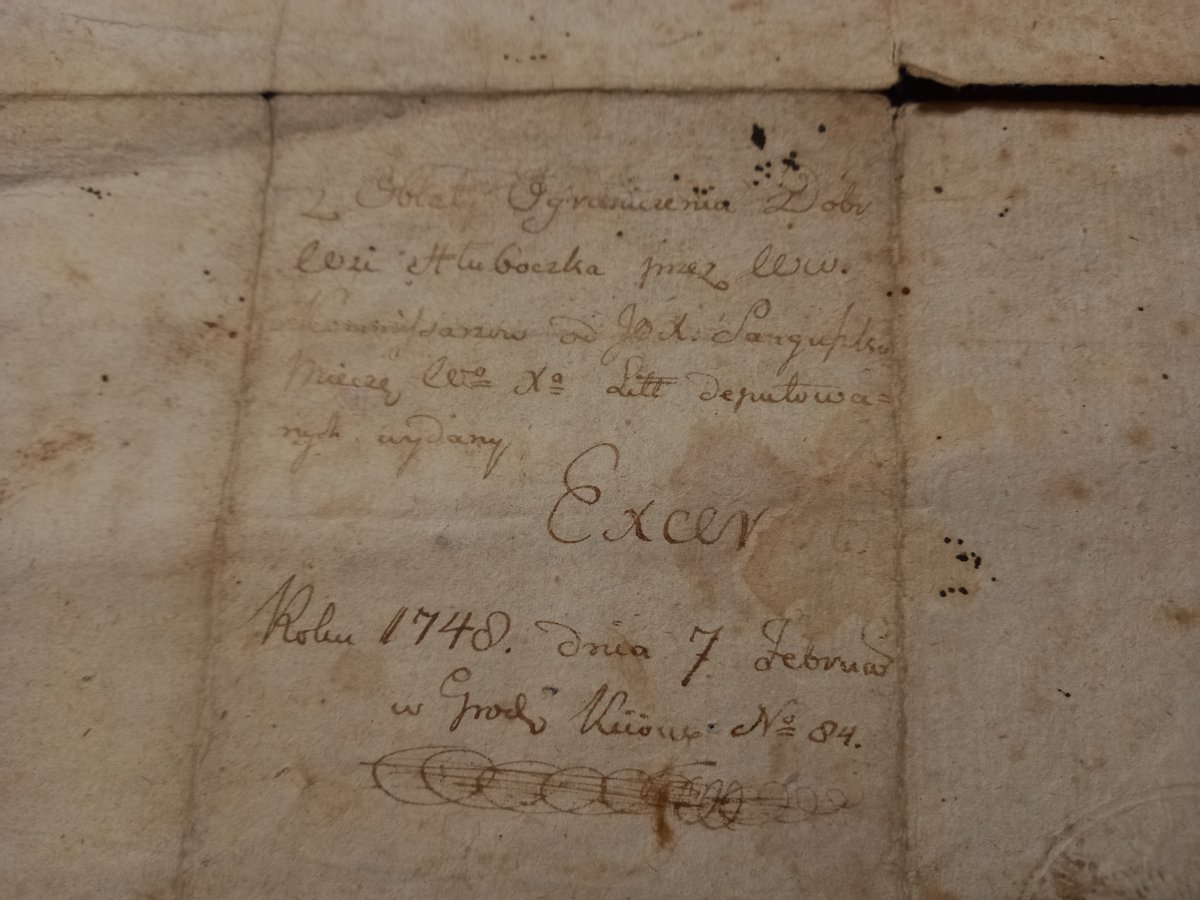 z Oblat, Ograniczenia Dobr
Wsi Hłuboczka przez Ww.
Kommissarzow od JOX. Sanguszka
Wo Xo Litt deputowa=
nych wydany
Excer
Roku 1748. dnia 7 Februar
w Grodz Kiiows No 84.